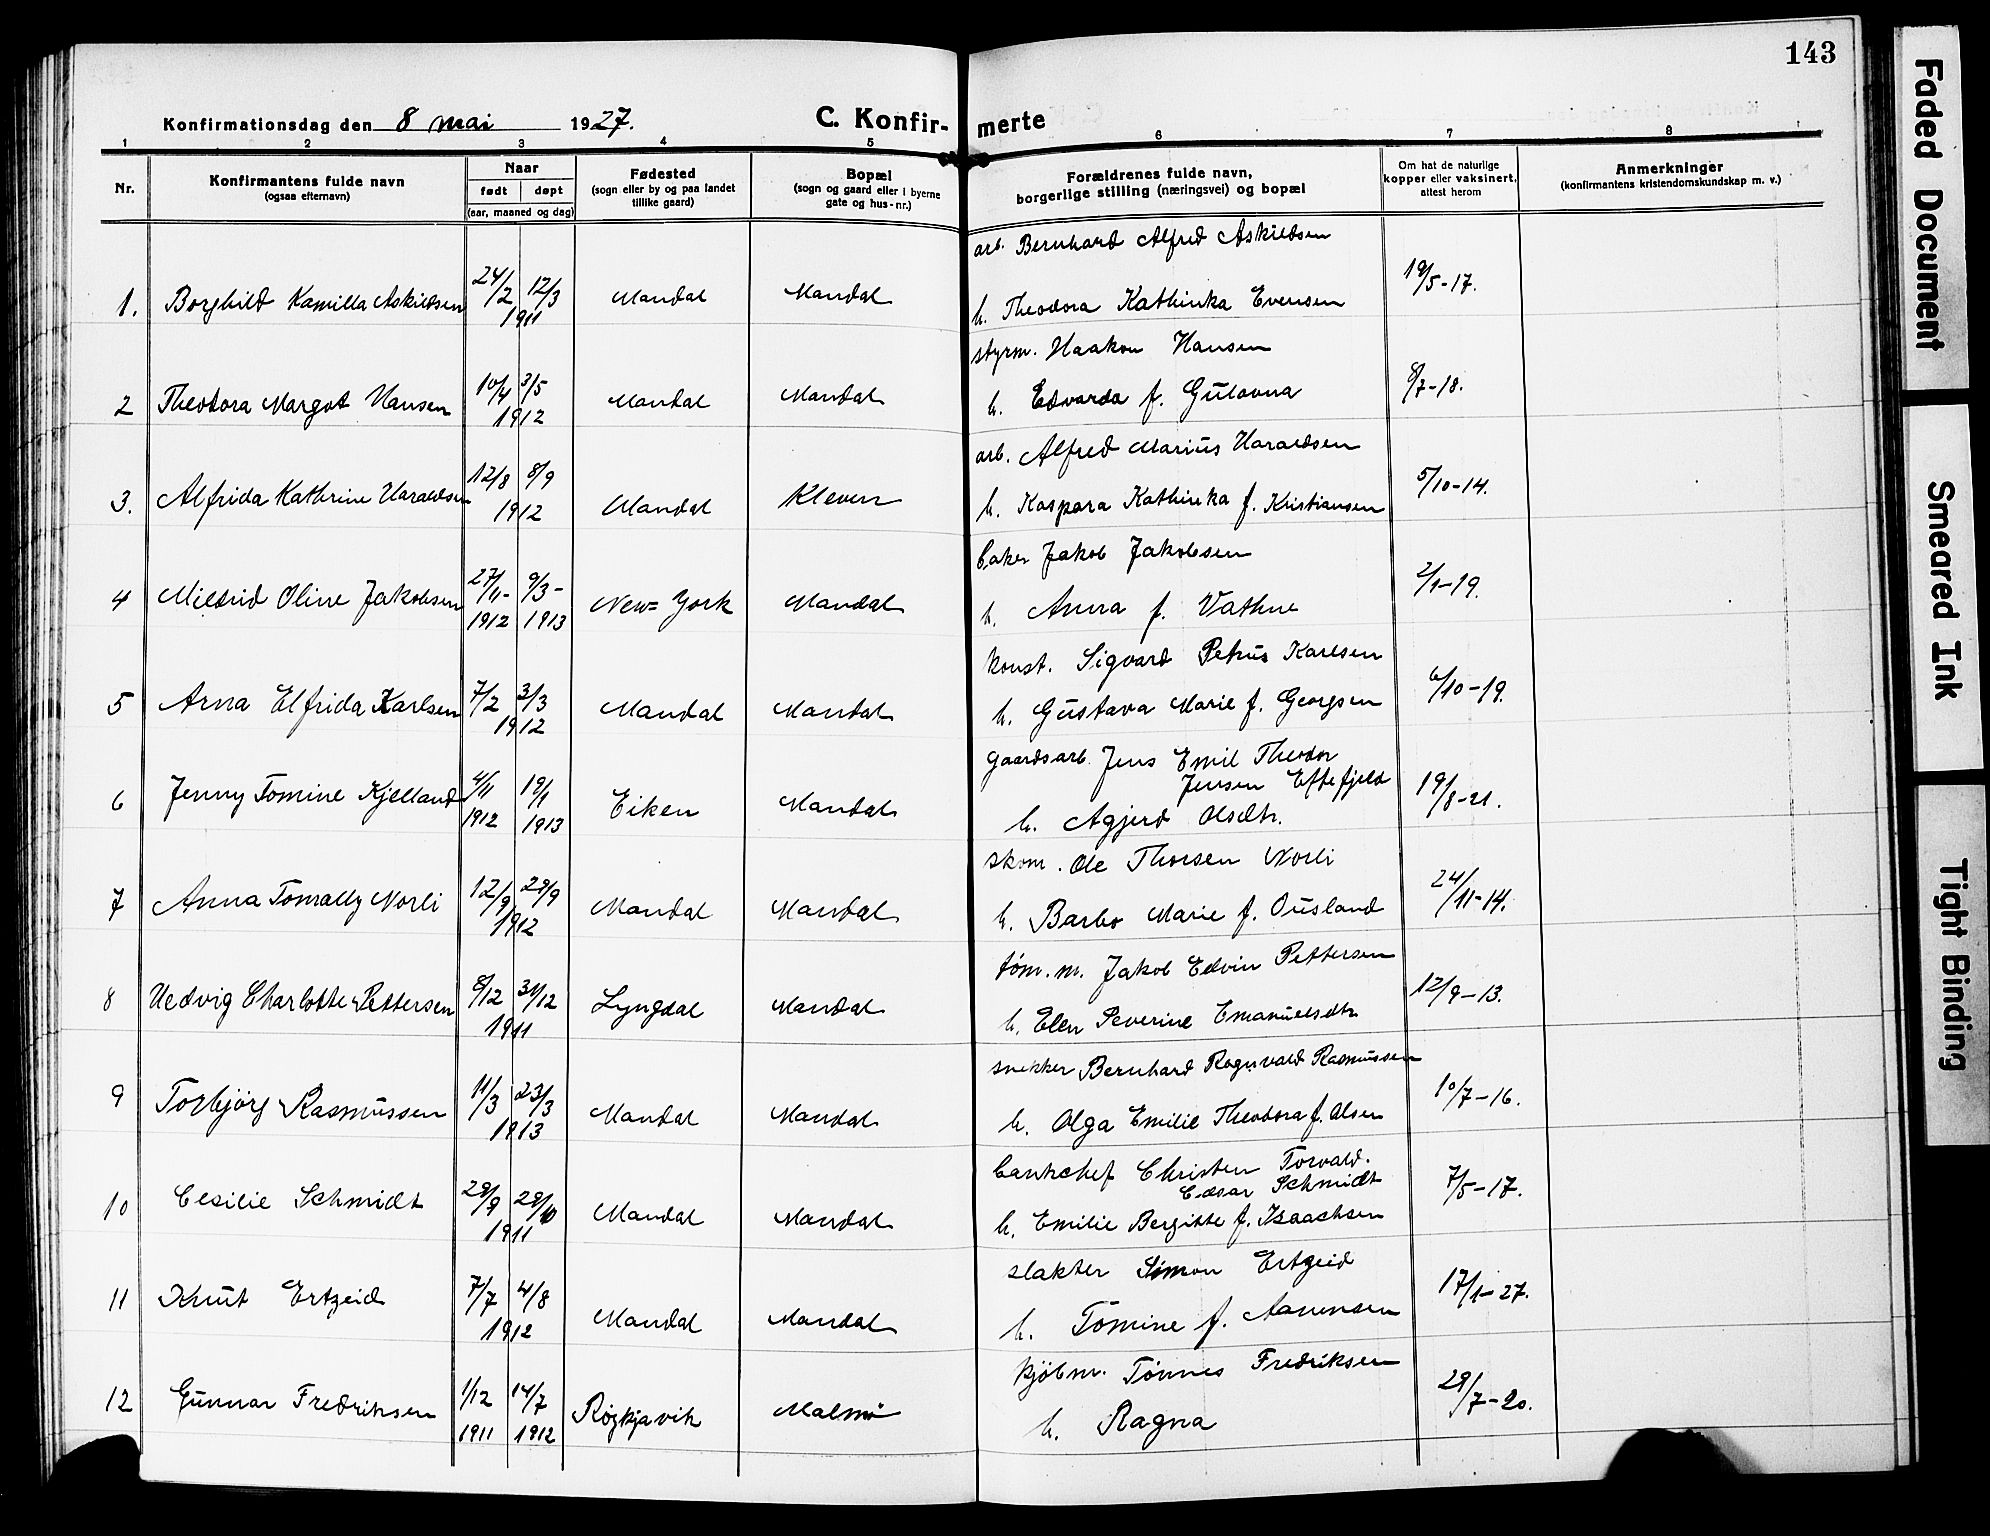 143
Konfirmationsdag den 8 mai 1927.
C. Konfirmerte
1 2 3 4 5 6 7 8
Nr.
Konfirmantens fulde navn
(ogsaa efternavn)
Naar
født døpt
(aar, maaned og dag)
Fødested
(sogn eller by og paa landet
tillike gaard)
Bopæl
(sogn og gaard eller i byerne
gate og hus-nr.)
Forældrenes fulde navn,
borgerlige stilling (næringsvei) og bopæl
Om hat de naturlige
kopper eller vaksinert,
attest herom
Anmerkninger
(konfirmantens kristendomskundskap m. v.)
arb. Bernhard Alfred Askildsen
1. Borghild Kamilla Askildsen 24/2 12/3 1911 Mandal Mandal h. Theodora Kathinka Evensen 19/5-17.
styrm. Haakon Hansen
2 Theodora Margot Hansen 10/4 3/5 1912 Mandal Mandal h. Edvarda f. Gulovna 8/7-18.
arb. Alfred Marius Haraldsen
3. Alfrida Kathrine Haraldsen 12/8 8/9 1912 Mandal Kleven h. Kaspara Kathinka f. Kristiansen 5/10-14.
baker Jakob Jakobsen
4 Mildrid Oline Jakobsen 27/11- 9/3- 1912 1913 New=York Mandal h. Anna f. Vathne 2/1-19.
konst. Sigvard Petrus Karlsen
5 Arna Elfrida Karlsen 7/2 3/3 1912 Mandal Mandal h. Gustava Marie f. Georgsen 6/10-19.
gaardsarb. Jens Emil Theodor
Jensen Eftefjeld
6 Jenny Tomine Kjelland 4/11 19/1 1912 1913 Eiken Mandal h. Agjerd Olsdtr. 19/8-21.
skom. Ole Thorsen Norli
7 Anna Tomally Norli 12/9 29/9 1912 Mandal Mandal h. Barbo Marie f. Ousland 24/11-14.
tøm.m. Jakob Edvin Pettersen
8 Hedvig Charlotte Pettersen 8/12 31/12 1911 Lyngdal Mandal h. Elen Severine Emanuelsdtr 12/9-13.
snekker Bernhard Rognvald Rasmussen
9 Torbjørg Rasmussen 11/3 23/3 1913 Mandal Mandal h. Olga Emilie Theodora f. Olsen 10/7-16.
bankchef Christen Torvald.
Edsar Schmidt
10 Cesilie Schmidt 29/9 29/10 1911 Mandal Mandal h. Emilie Bergitte f. Isaachsen 7/5-17.
slakter Simon Ertzeid
11 Knut Ertzeid 7/7 4/8 1912 Mandal Mandal h. Tomine f. Aanensen 17/1-27.
kjøbm. Tønnes Fredriksen
12 Gunnar Fredriksen 1/12 14/7 1911 1912 Røykjavik Malmø h. Ragna 29/7-20.
Faded Document
Smeared Ink
Tight Binding